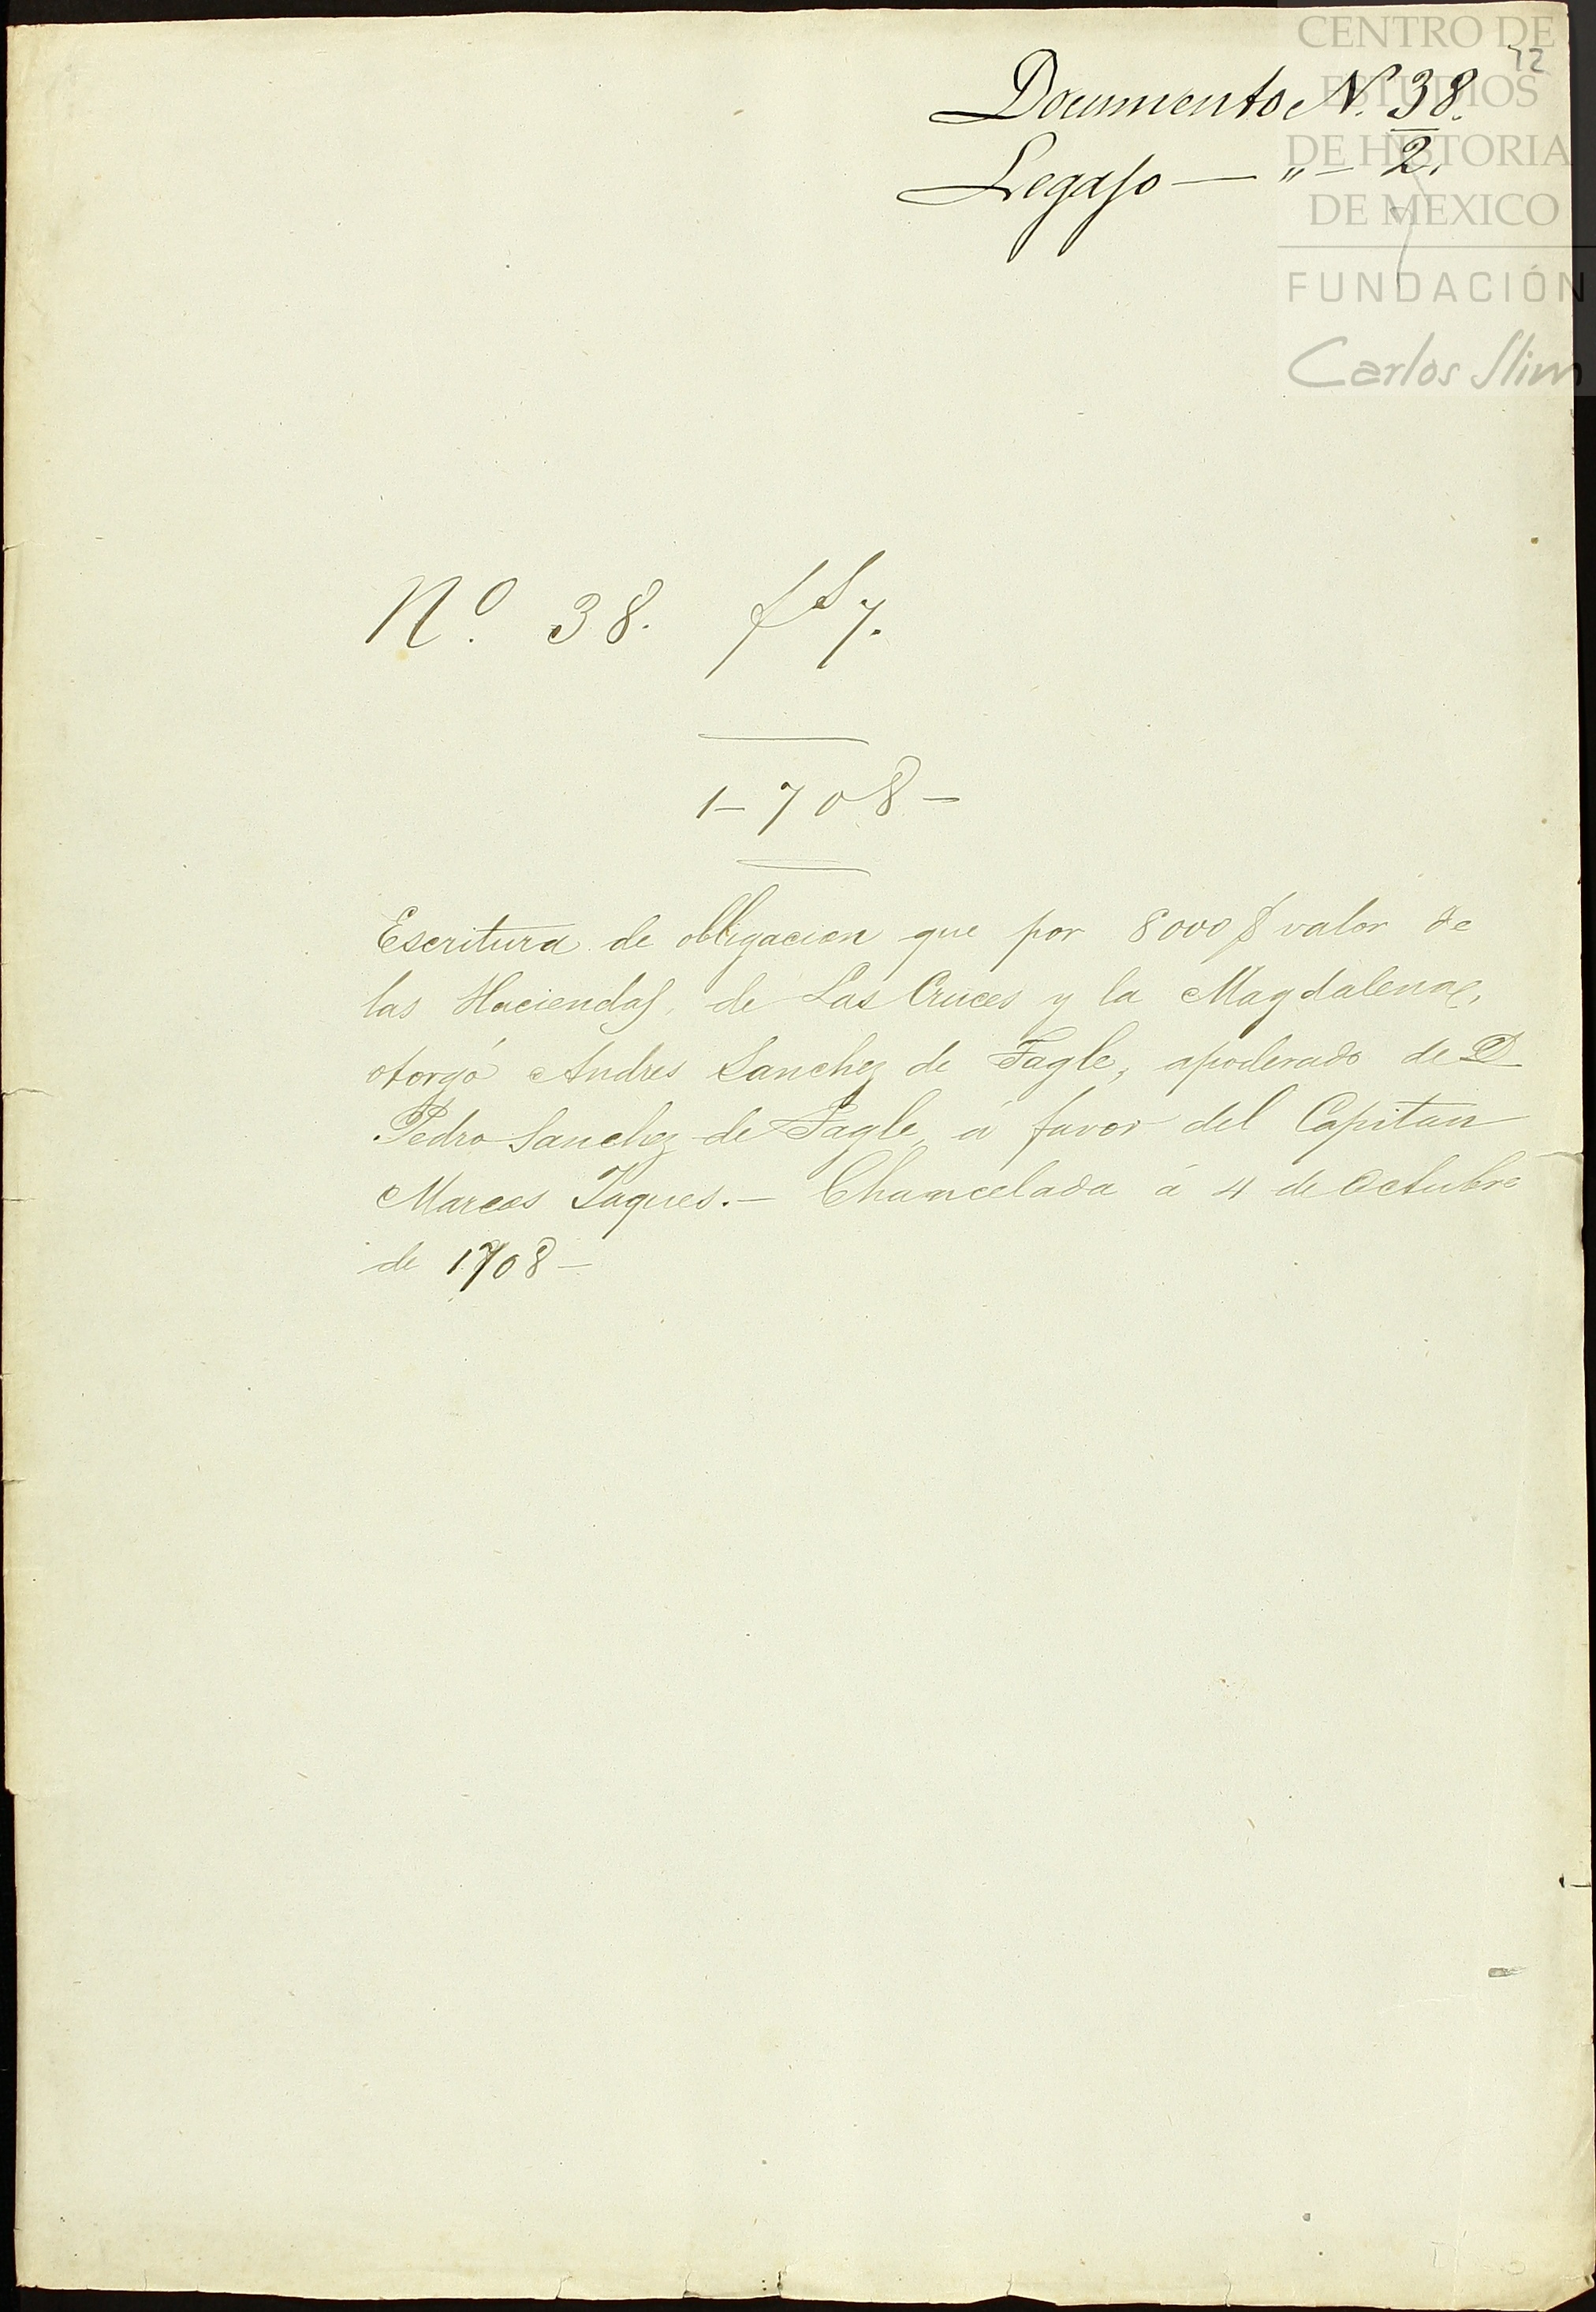 CENTRO DE
ESTUDIOS
DE HISTORIA
DE MEXICO
FUNDACIÓN
Carlos Slim
12
Documento N. 38.
Legajo — „ — 2.
Nº. 38. fs 7.
1-708-
Escritura de obligacion que por 8000 $ valor de
las Haciendas, de Las Cruces y la Magdalena,
otorgó Andres Sanchez de Tagle, apoderado de D
Pedro Sanchez de Tagle, á favor del Capitan
Marcos Taques.- Chancelada á 4 de Octubre
de 1708-